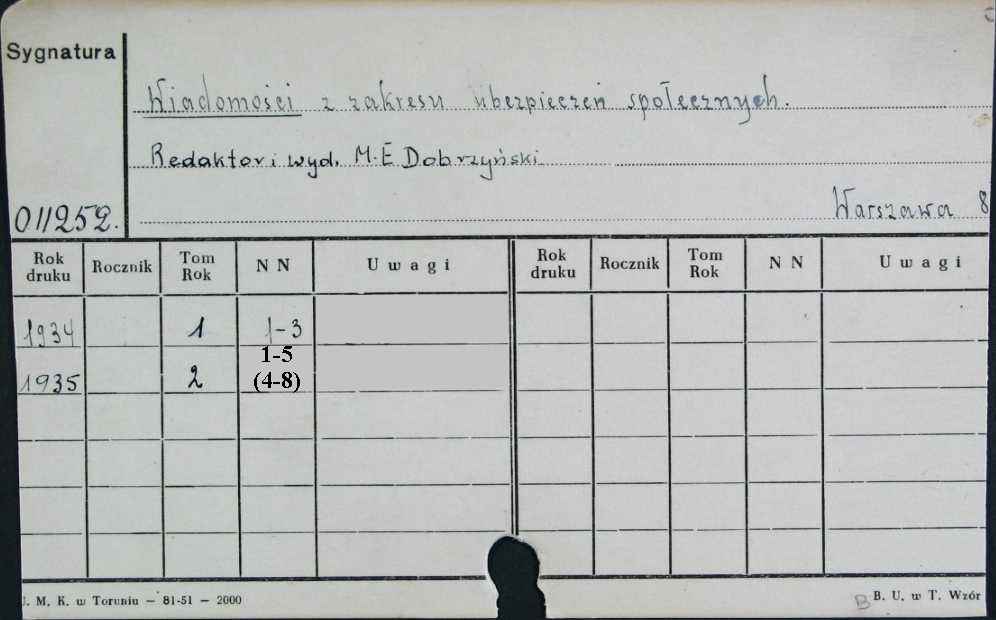 Sygnatura
Wiadomości z zakresu ubezpieczeń społecznych.
Redaktor i wyd. M.E Dobrzyński
Warszawa 8
011252.
Rok druku Rocznik Tom Rok N N Uwagi Rok druku Rocznik Tom Rok N N Uwagi
1934 1 1-3
1-5
1935 2 (4-8)
. M. K. w Toruniu — 81-51 — 2000
B B. U. w T. Wzór